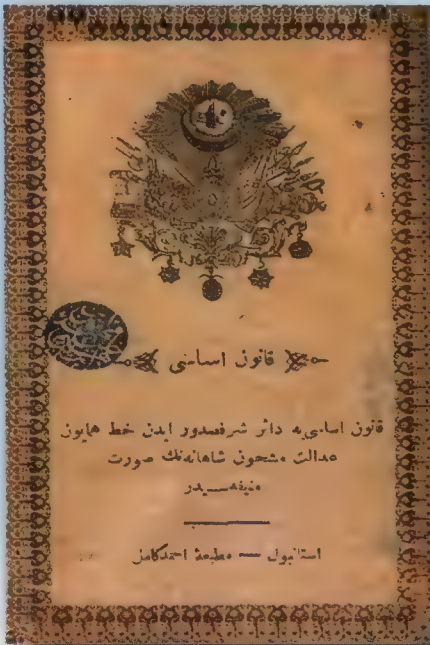 قانون اساسی
قانون اساسی‌یه دائر شرفصدور ایدن خط همایون
عدالت مشحون شاهانه‌نك صورت
منیفه‌سیدر
استانبول — مطبعهٔ احمد کامل